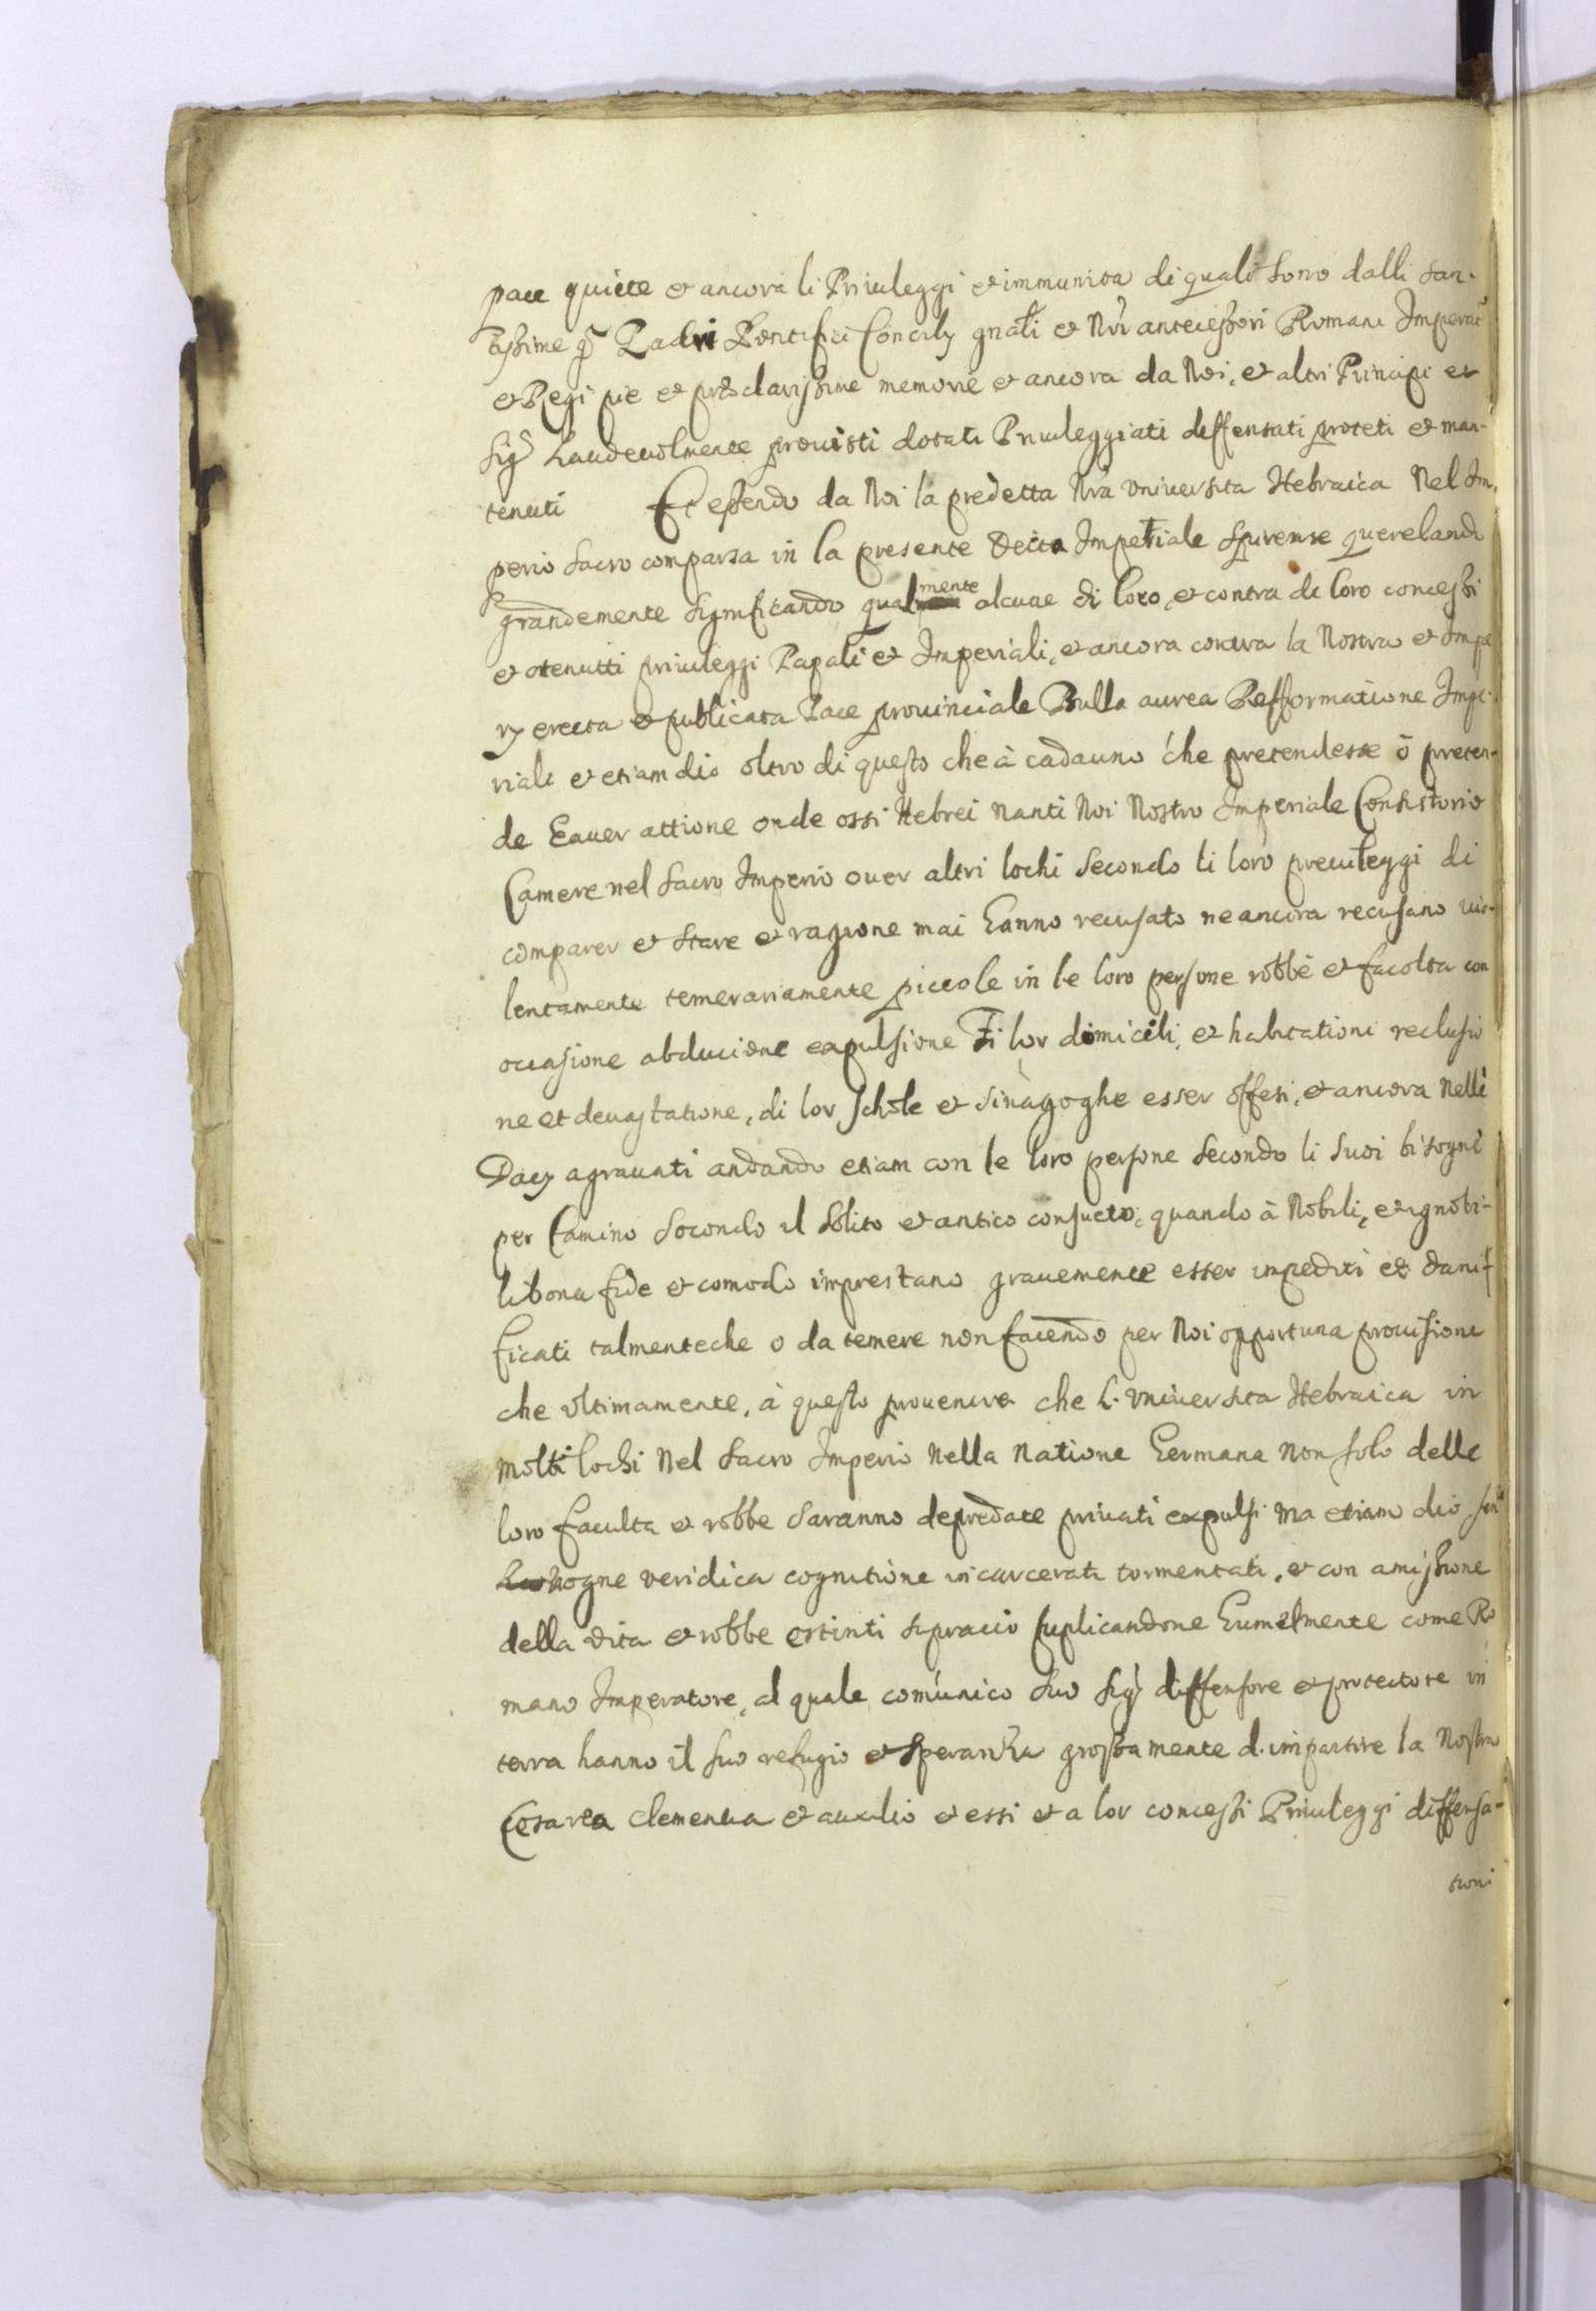 pace quiete et ancora li Priuileggi et immunita di quali sono dalli san-
tissime q. Padri Pontifici Concilij gnali et Nri antecessori Romani Imperat
et Regi pie et preclarissime memorie et ancora da Noi, et altri Principi et
Sig Laudeuolmente prouisti dotati Priuileggiati deffensati proteti et man-
tenuti Et essendo da Noi la predetta Nra Vniuersita Hebraica Nel Im-
perio Sacro comparsa in la presente Deitta Imperiale Spirense querelando
grandemente significando qualmente alcune di loro, et contra de loro concessi
et otenutti priuileggi Papali et Imperiali, et ancora contra la Nostra et Impe
rij erecta et publicata Pace prouinciale Bulla aurea Refformatione Impe-
riali et etiam dio oltro di questo che à cadauno che pretendesse ò preten-
de Hauer attione onde ossi Hebrei nanti Noi Nostro Imperiale Consistorio
Camere nel Sacro Imperio ouer altri lochi secondo li loro preuileggi di
comparer et stare et ragione mai Hanno recusato ne ancora recusano uio-
lentamente temerariamente piccole in le loro persone robbe et facolta con
occasione abducione expulsione di lor domicili, et habitationi reclusio
ne et deuastatione, di lor schole et sinagoghe esser offesi, et ancora nelli
Dacij agrauati andando etiam con le loro persone secondo li suoi bisogni
per Camino socondo il solito et antico consueto, quando à Nobili, et ignobi-
li bona fide et comodo imprestano grauemente esser impediti et danif-
ficati talmenteche o da temere non facendo per Noi opportuna prouisione
che vltimamente, à questo prouenire che l. Vniuersita Hebraica in
molti lochi Nel Sacro Imperio Nella Natione Germana non solo delle
loro faculta et robbe saranno depredate priuati expulsi ma etiam dio
ogne veridica cognitione incarcerati tormentati, et con amissione
della vita et robbe estinti sopracio suplicandone Humelmente come Ro
mano Imperatore, al quale com'unico suo Sig diffensore et protectore in
terra hanno il suo refugio et speranza d'impartire la Nostra
Cesarea clementia et auxilio et essi et a lor concessi Priuileggi diffensa-
tioni